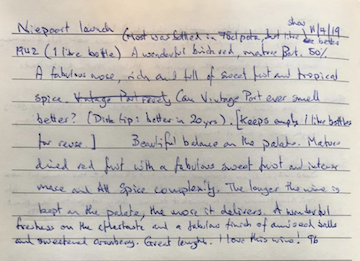 Niepoort launch (Most was bottled in 75cl pots, but 1 litre show 11/7/19
1942 (1 litre bottle) A wonderful birch red, mature Port. 50%
A fabulous nose, rich and full of sweet fruit and tropical
spice. Vintage Port Can Vintage Port ever smell
better? (Dirk tip: better in 20 yrs). [Keeps empty 1 litre bottles
for reuse.] Beautiful balance on the palate. Mature
dried red fruit with a fabulous sweet fruit and intense
mace and All Spice complexity. The longer the wine is
kept on the palate, the more it delivers. A wonderful
freshness on the aftertaste and a fabulous finish of aniseed balls
and sweetened cranberry. Great length. I love this wine! 96